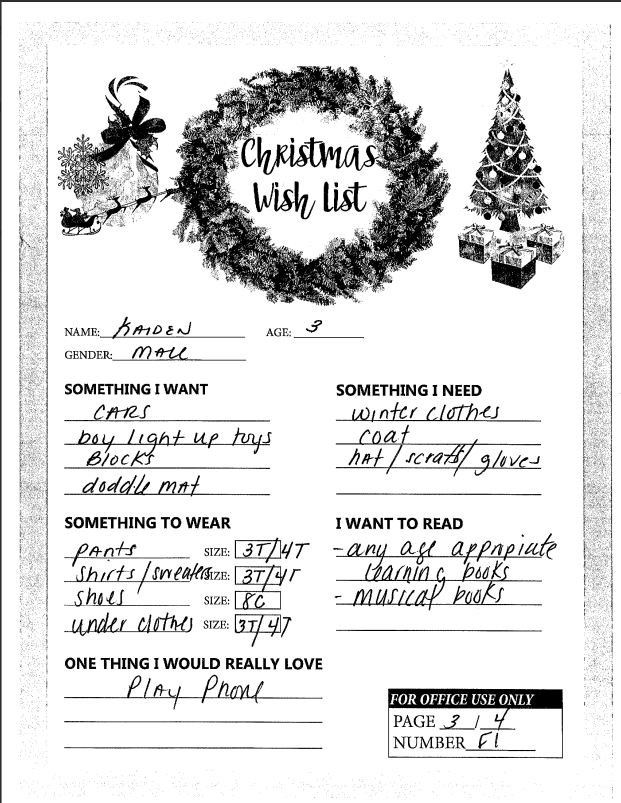 Christmas
Wish List
NAME: KAIDEN AGE: 3
GENDER: MALE
SOMETHING I WANT
CARS
boy light up toys
Blocks
doddle mat
SOMETHING I NEED
winter clothes
coat
hat / scraff / gloves
SOMETHING TO WEAR
pants SIZE: 3T/4T
shirts / sweaters SIZE: 3T/4T
shoes SIZE: 8C
under clothes SIZE: 3T/4T
I WANT TO READ
- any age appropiate
learning books
- musical books
ONE THING I WOULD REALLY LOVE
Play Phone
FOR OFFICE USE ONLY
PAGE 3 / 4
NUMBER F1